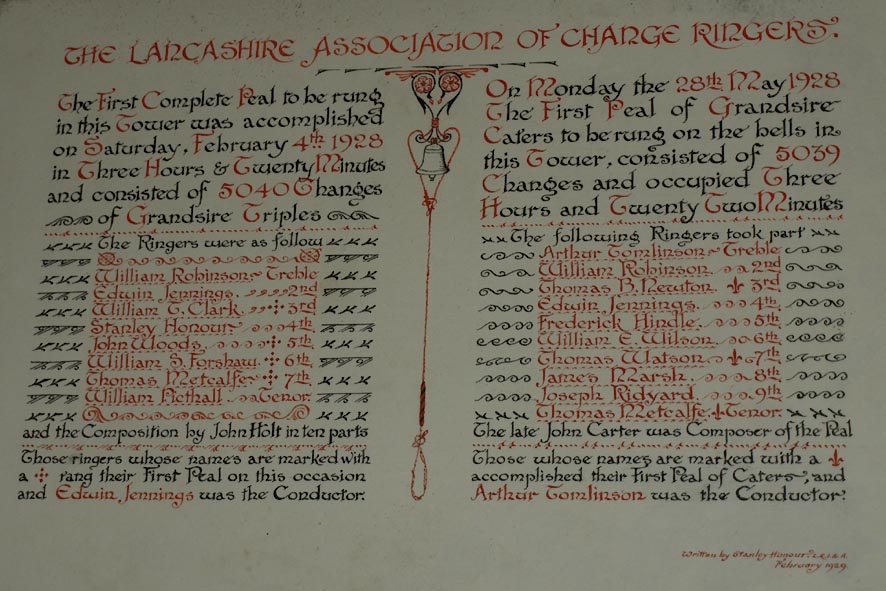 THE LANCASHIRE ASSOCIATION OF CHANGE RINGERS.
The First Complete Peal to be rung
in this Tower was accomplished
on Saturday, February 4th 1928
in Three Hours & Twenty Minutes
and consisted of 5040 Changes
of Grandsire Triples
The Ringers were as follow
William Robinson Treble
Edwin Jennings. 2nd
William G. Clark. 3rd
Stanley Honour 4th
John Woods 5th
William S. Forshaw. 6th
Thomas Metcalfe 7th
William Tenor.
and the Composition by John Holt in ten parts
Those ringers whose names are marked with
a rang their First Peal on this occasion
and Edwin Jennings was the Conductor.
On Monday the 28th May 1928
The First Peal of Grandsire
Caters to be rung on the bells in
this Tower, consisted of 5039
Changes and occupied Three
Hours and Twenty Two Minutes
The following Ringers took part
Arthur Tomlinson Treble
William Robinson 2nd
Thomas B. Newton. 3rd
Edwin Jennings. 4th
Frederick Hindle. 5th
William E. Wilson. 6th
Thomas Watson 7th
James Marsh. 8th
Joseph Ridyard. 9th
Thomas Metcalfe. Tenor.
The late John Carter was Composer of the Peal
Those whose names are marked with a
accomplished their First Peal of Caters, and
Arthur Tomlinson was the Conductor.
Written by Stanley Honour.
February 1929.